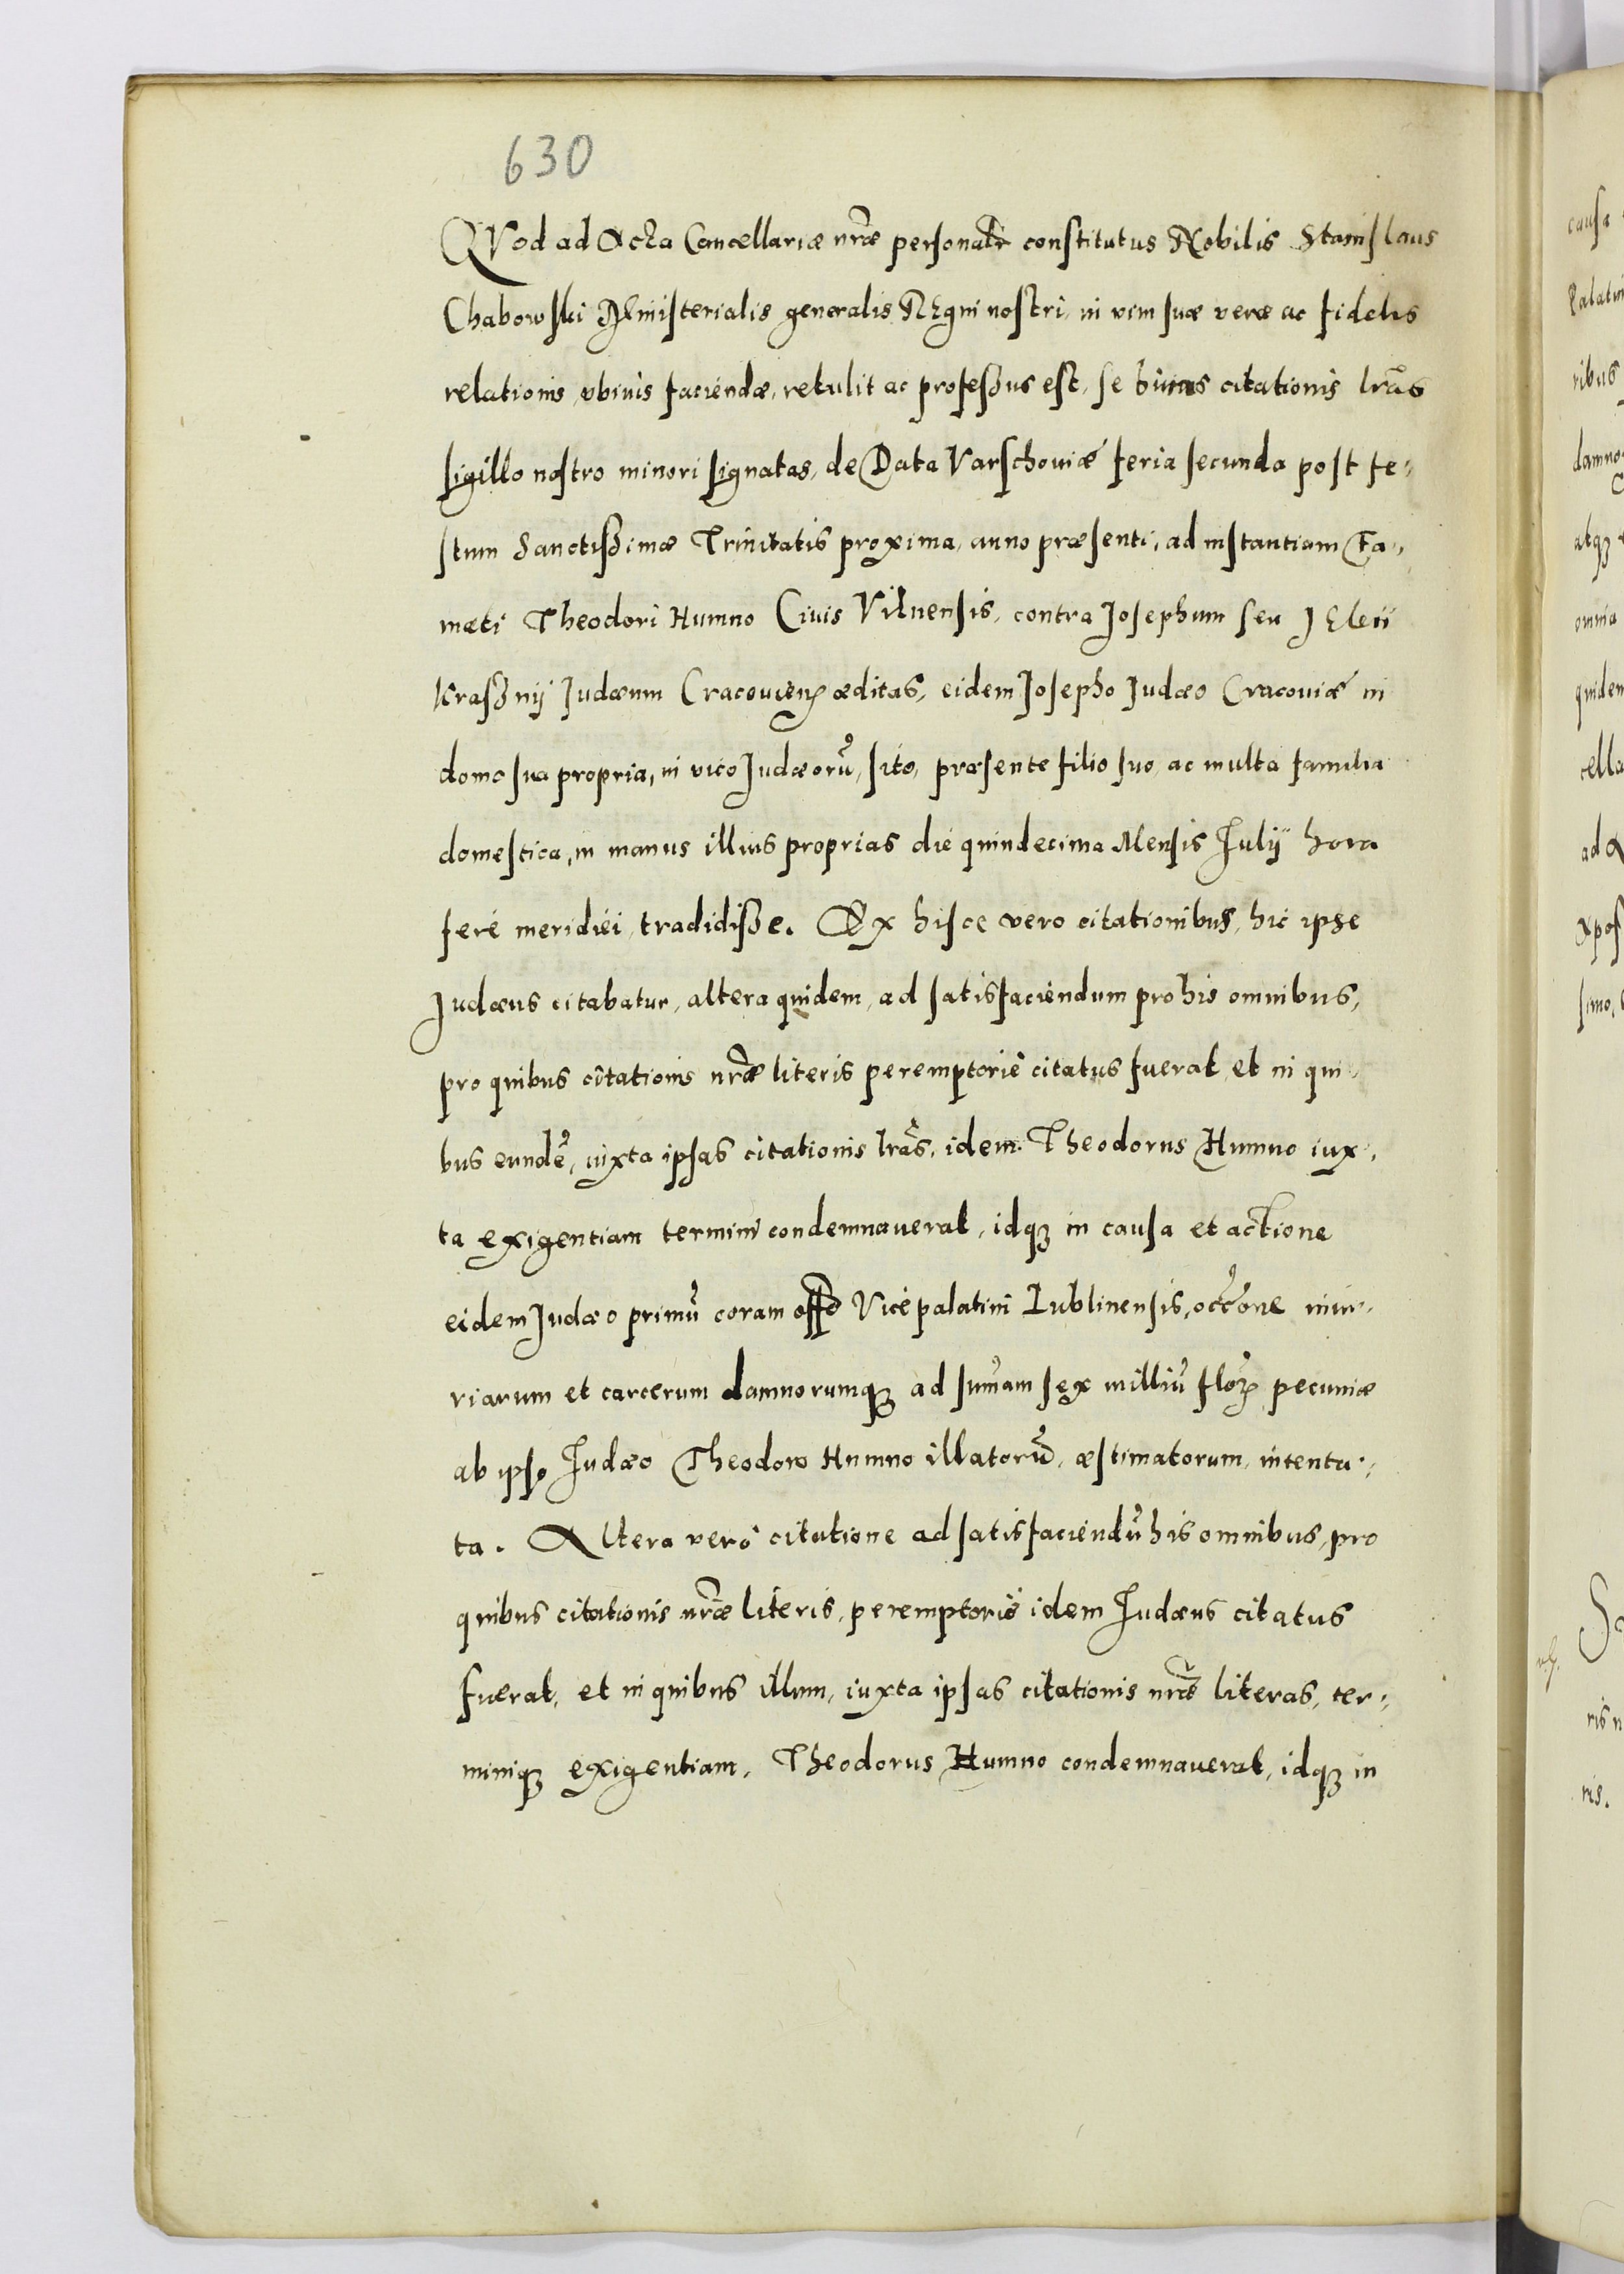 630
QVod ad Acta Cancellariæ nr̃æ personalr̃ constitutus Nobilis Stanislaus
Chabowski Ministerialis generalis REgni nostri, in vim suæ veræ ac fidelis
relationis, vbiuis faciendæ, retulit ac professus est, se binas citationis lr̃as
sigillo nostro minori signatas, de Data Varschouiæ feria secunda post fe,,
stum Sanctissimæ Trinitatis proxima, anno præsenti, ad instantiam Fa,,
mati Theodori Humno Ciuis Vilnensis, contra Josephum seu
Judæum Cracouien̄ æditas, eidem Josepho Judæo Cracouiæ in
domo sua propria, in vico Judæorũ, sito, præsente filio suo, ac multa familia
domestica, in manus illius proprias die quindecima Mensis Julij hora
feré meridiei, tradidisse. Ex hisce vero citationibus, hic ipse
Judæus citabatur, altera quidem, ad satisfaciendum pro his omnibus,
pro quibus citationis nr̃æ literis peremptorié citatus fuerat, et in qui,,
bus eundẽ, iuxta ipsas citationis lr̃as, idem Theodorus Humno iux,,
ta exigentiam termini condemnauerat, idq3 in causa et actione
eidem Judæo primũ coram offo Vicepalatini Lublinensis, occõne iniu,,
riarum et carcerum damnorumq3 ad sum̃am sex milliũ flor̃ pecuniæ
ab ipso Judæo Theodoro Humno illatorũ, æstimatorum, intenta,,
ta. Altera veró citatione ad satisfaciendũ his omnibus, pro
quibus citationis nr̃æ literis, peremptorié idem Judæus citatus
fuerat, et in quibus illum, iuxta ipsas citationis nr̃æ literas, ter,,
miniq3 exigentiam, Theodorus Humno condemnauerat, idq3 in